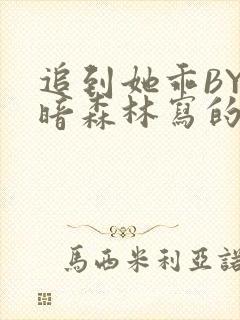 追到她乖BY
暗森林寫的
馬西米利亞諾